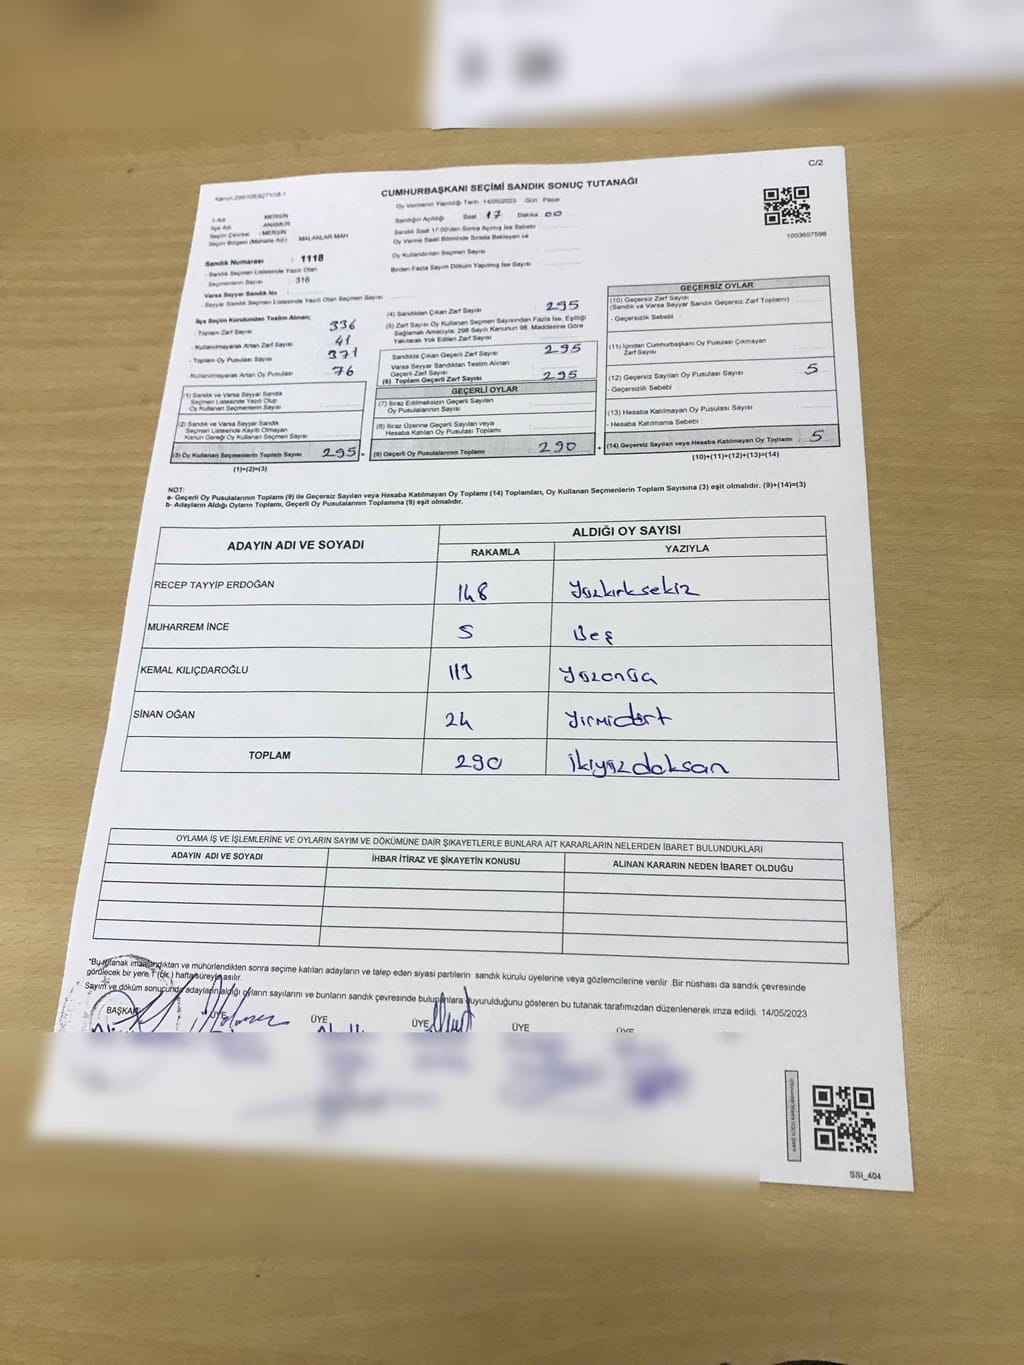 C/2
CUMHURBAŞKANI SEÇİMİ SANDIK SONUÇ TUTANAĞI
Oy Vermenin Yapıldığı Tarih :14/05/2023 Gün Pazar
İl Adı : MERSİN
İlçe Adı : ANAMUR
Seçim Çevresi : MERSİN
Seçim Bölgesi (Mahalle Adı) : MALAKLAR MAH.
Sandık Numarası : 1118
- Sandık Seçmen Listesinde Yazılı Olan
Seçmenlerin Sayısı : 316
Varsa Seyyar Sandık No :
- Seyyar Sandık Seçmen Listesinde Yazılı Olan Seçmen Sayısı
Sandığın Açıldığı Saat 17 Dakika 00
Sandık Saat 17:00'den Sonra Açılmış İse Sebebi :
Oy Verme Saati Bitiminde Sırada Bekleyen ve
Oy Kullandırılan Seçmen Sayısı :
Birden Fazla Sayım Döküm Yapılmış İse Sayısı :
1093607598
İlçe Seçim Kurulundan Teslim Alınan;
- Toplam Zarf Sayısı 336
- Kullanılmayarak Artan Zarf Sayısı 41
- Toplam Oy Pusulası Sayısı 371
Kullanılmayarak Artan Oy Pusulası 76
(1) Sandık ve Varsa Seyyar Sandık
Seçmen Listesinde Yazılı Olup
Oy Kullanan Seçmenlerin Sayısı
(2) Sandık ve Varsa Seyyar Sandık
Seçmen Listesinde Kayıtlı Olmayan
Kanun Gereği Oy Kullanan Seçmen Sayısı
(3) Oy Kullanan Seçmenlerin Toplam Sayısı 295 =
(1)+(2)=(3)
(4) Sandıktan Çıkan Zarf Sayısı : 295
(5) Zarf Sayısı Oy Kullanan Seçmen Sayısından Fazla İse, Eşitliği
Sağlamak Amacıyla; 298 Sayılı Kanunun 98. Maddesine Göre
Yakılarak Yok Edilen Zarf Sayısı :
Sandıkta Çıkan Geçerli Zarf Sayısı : 295
Varsa Seyyar Sandıktan Teslim Alınan
Geçerli Zarf Sayısı :
(6) Toplam Geçerli Zarf Sayısı : 295
GEÇERLİ OYLAR
(7) İtiraz Edilmeksizin Geçerli Sayılan
Oy Pusulalarının Sayısı :
(8) İtiraz Üzerine Geçerli Sayılan veya
Hesaba Katılan Oy Pusulası Toplamı :
(9) Geçerli Oy Pusulalarının Toplamı : 290 +
GEÇERSİZ OYLAR
(10) Geçersiz Zarf Sayısı
(Sandık ve Varsa Seyyar Sandık Geçersiz Zarf Toplamı) :
- Geçersizlik Sebebi :
(11) İçinden Cumhurbaşkanı Oy Pusulası Çıkmayan
Zarf Sayısı :
(12) Geçersiz Sayılan Oy Pusulası Sayısı : 5
- Geçersizlik Sebebi :
(13) Hesaba Katılmayan Oy Pusulası Sayısı :
- Hesaba Katılmama Sebebi :
(14) Geçersiz Sayılan veya Hesaba Katılmayan Oy Toplamı : 5
(10)+(11)+(12)+(13)=(14)
NOT:
a- Geçerli Oy Pusulalarının Toplamı (9) ile Geçersiz Sayılan veya Hesaba Katılmayan Oy Toplamı (14) Toplamları, Oy Kullanan Seçmenlerin Toplam Sayısına (3) eşit olmalıdır. (9)+(14)=(3)
b- Adayların Aldığı Oyların Toplamı, Geçerli Oy Pusulalarının Toplamına (9) eşit olmalıdır.
ADAYIN ADI VE SOYADI ALDIĞI OY SAYISI
RAKAMLA YAZIYLA
RECEP TAYYİP ERDOĞAN 148 Yüzkırksekiz
MUHARREM İNCE 5 Beş
KEMAL KILIÇDAROĞLU 113 Yüzonüç
SİNAN OĞAN 24 Yirmidört
TOPLAM 290 İkiyüzdoksan
OYLAMA İŞ VE İŞLEMLERİNE VE OYLARIN SAYIM VE DÖKÜMÜNE DAİR ŞİKAYETLERLE BUNLARA AİT KARARLARIN NELERDEN İBARET BULUNDUKLARI
ADAYIN ADI VE SOYADI İHBAR İTİRAZ VE ŞİKAYETİN KONUSU ALINAN KARARIN NEDEN İBARET OLDUĞU
*Bu tutanak imzalandıktan ve mühürlendikten sonra seçime katılan adayların ve talep eden siyasi partilerin sandık kurulu üyelerine veya gözlemcilerine verilir. Bir nüshası da sandık çevresinde
görülecek bir yere 1 (bir ) hafta süreyle asılır.
Sayım ve döküm sonucunda adayların aldığı oyların sayılarını ve bunların sandık çevresinde bulunanlara duyurulduğunu gösteren bu tutanak tarafımızdan düzenlenerek imza edildi. 14/05/2023
BAŞKAN ÜYE ÜYE ÜYE ÜYE ÜYE
SSI_404